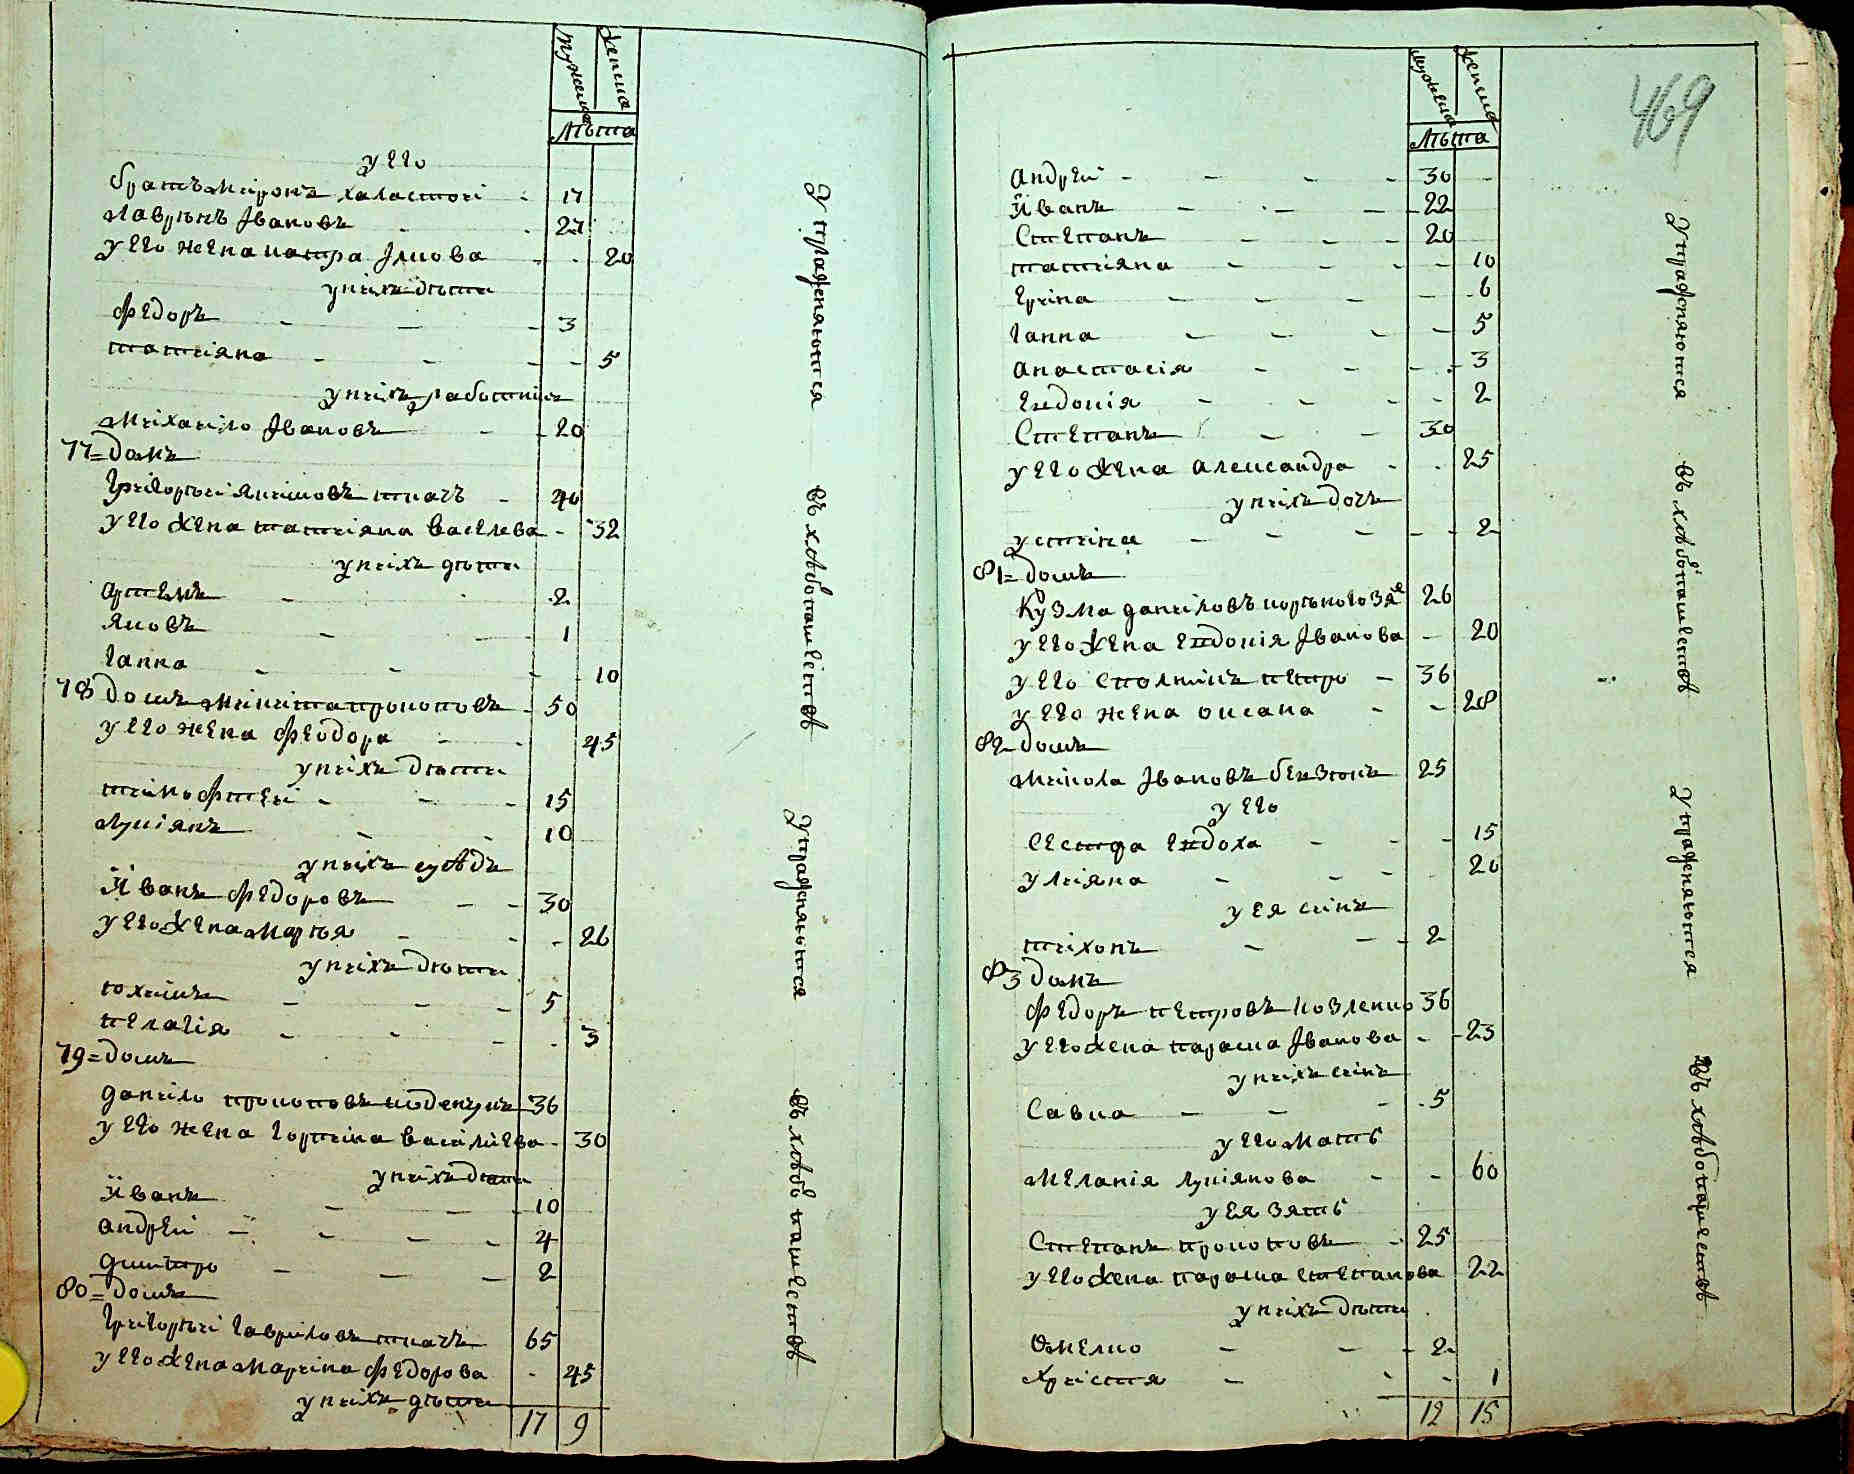 мужеска женска
Лѣта
у его
братъ Миронъ халастои 17
Лаврѣнъ Івановъ 27
у его жена катра Ілкова 20
у нихъ дѣти
Федоръ 3
татияна 5
у нихъ работникъ
Михаило Івановъ 20
77 = Домъ
Григорѣи Якимовъ ткачъ 40
у его жена татияна Василева 32
у нихъ дѣти
артемъ 2
яковъ 1
Ганна 10
78 Домъ Микита прокоповъ 50
у его жена Феодора 45
у нихъ Дѣти
тимофтеи 15
Лукіянъ 10
у нихъ сусѣдъ
Иванъ Федоровъ 30
у его жена Маръя 26
у нихъ Дѣти
юхимъ 5
пелагія 3
79 = Домъ
данило прокоповъ 36
у его жена Горпина Василиева 30
у нихъ Дѣти
Иванъ 10
андреи 4
дмитро 2
80 = Домъ
Григорѣи Гавриловъ ткачъ 65
у его жена Марина Федорова 45
у нихъ дѣти
17 9
Упражняются въ хлѣбопашествѣ
Упражняются въ хлѣбопашествѣ
469
мужеска женска
Лѣта
андреи 30
Иванъ 22
Степанъ 20
татияна 10
Ерина 6
Ганна 5
анастасія 3
Евдокія 2
Степанъ 30
у его жена александра 25
у нихъ дочь
устина 2
81 = Домъ
Кузма даниловъ 26
у его жена Евдокія Іванова 20
у его петро 36
у его жена оксана 28
82 Домъ
Микола Івановъ 25
у его
сестра Евдоха 15
улияна 20
у ея синъ
тихонъ 2
83 Домъ
Федоръ петровъ козленко 36
у его жена параска Іванова 23
у нихъ синъ
Савка 5
у его мать
Меланія Лукіянова 60
у ея зять
Степанъ прокоповъ 25
у его жена параска степанова 22
у нихъ Дѣти
Омелко 2
Христя 1
12 15
Упражняются въ хлѣбопашествѣ
Упражняются въ хлѣбопашествѣ